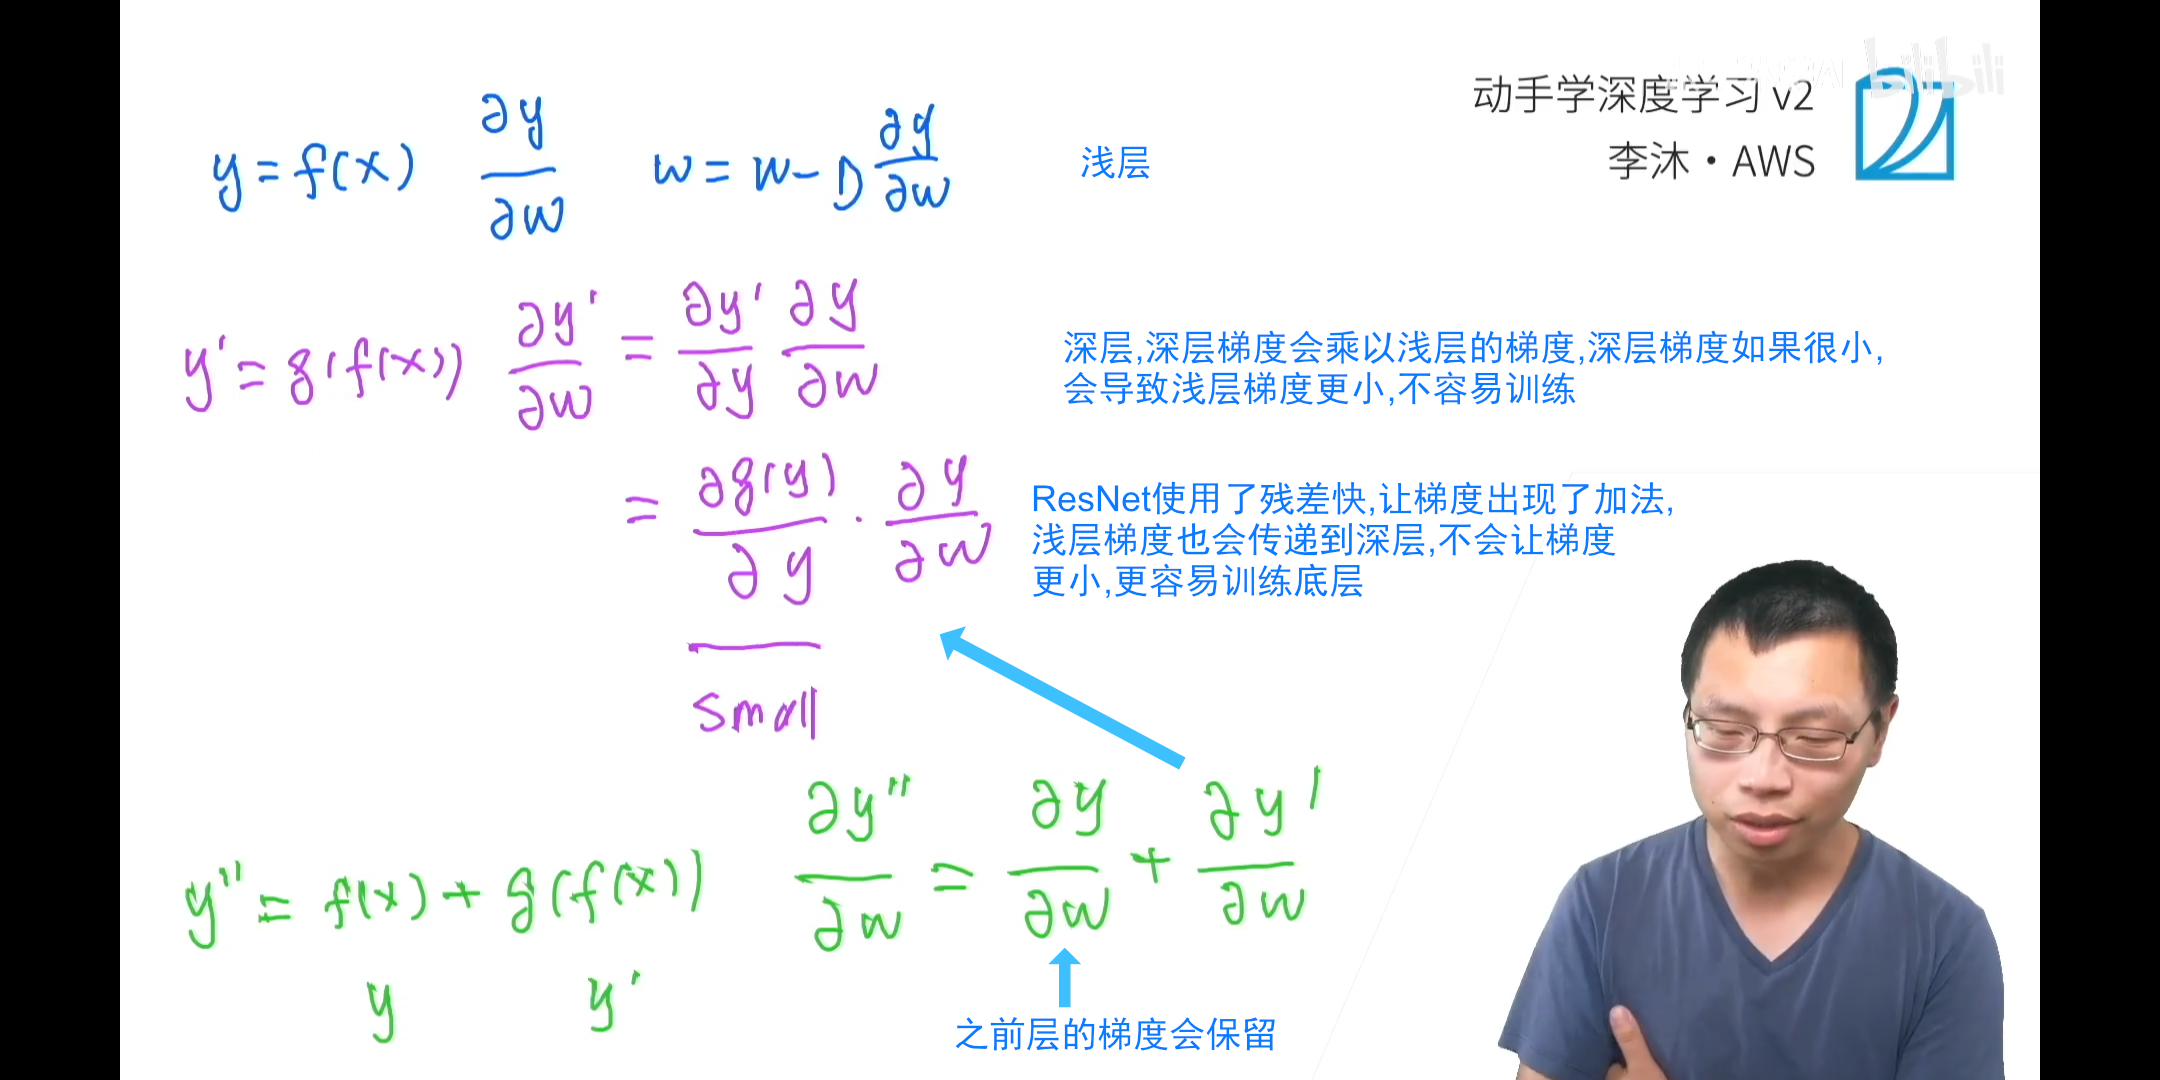 动手学深度学习 v2
李沐·AWS
bilibili
y = f(x) ∂y/∂w w = w - D ∂y/∂w
浅层
y' = g(f(x)) ∂y'/∂w = ∂y'/∂y ∂y/∂w
深层,深层梯度会乘以浅层的梯度,深层梯度如果很小,
会导致浅层梯度更小,不容易训练
= ∂g(y)/∂y · ∂y/∂w
ResNet使用了残差快,让梯度出现了加法,
浅层梯度也会传递到深层,不会让梯度
更小,更容易训练底层
small
y'' = f(x) + g(f(x)) ∂y''/∂w = ∂y/∂w + ∂y'/∂w
y y'
之前层的梯度会保留